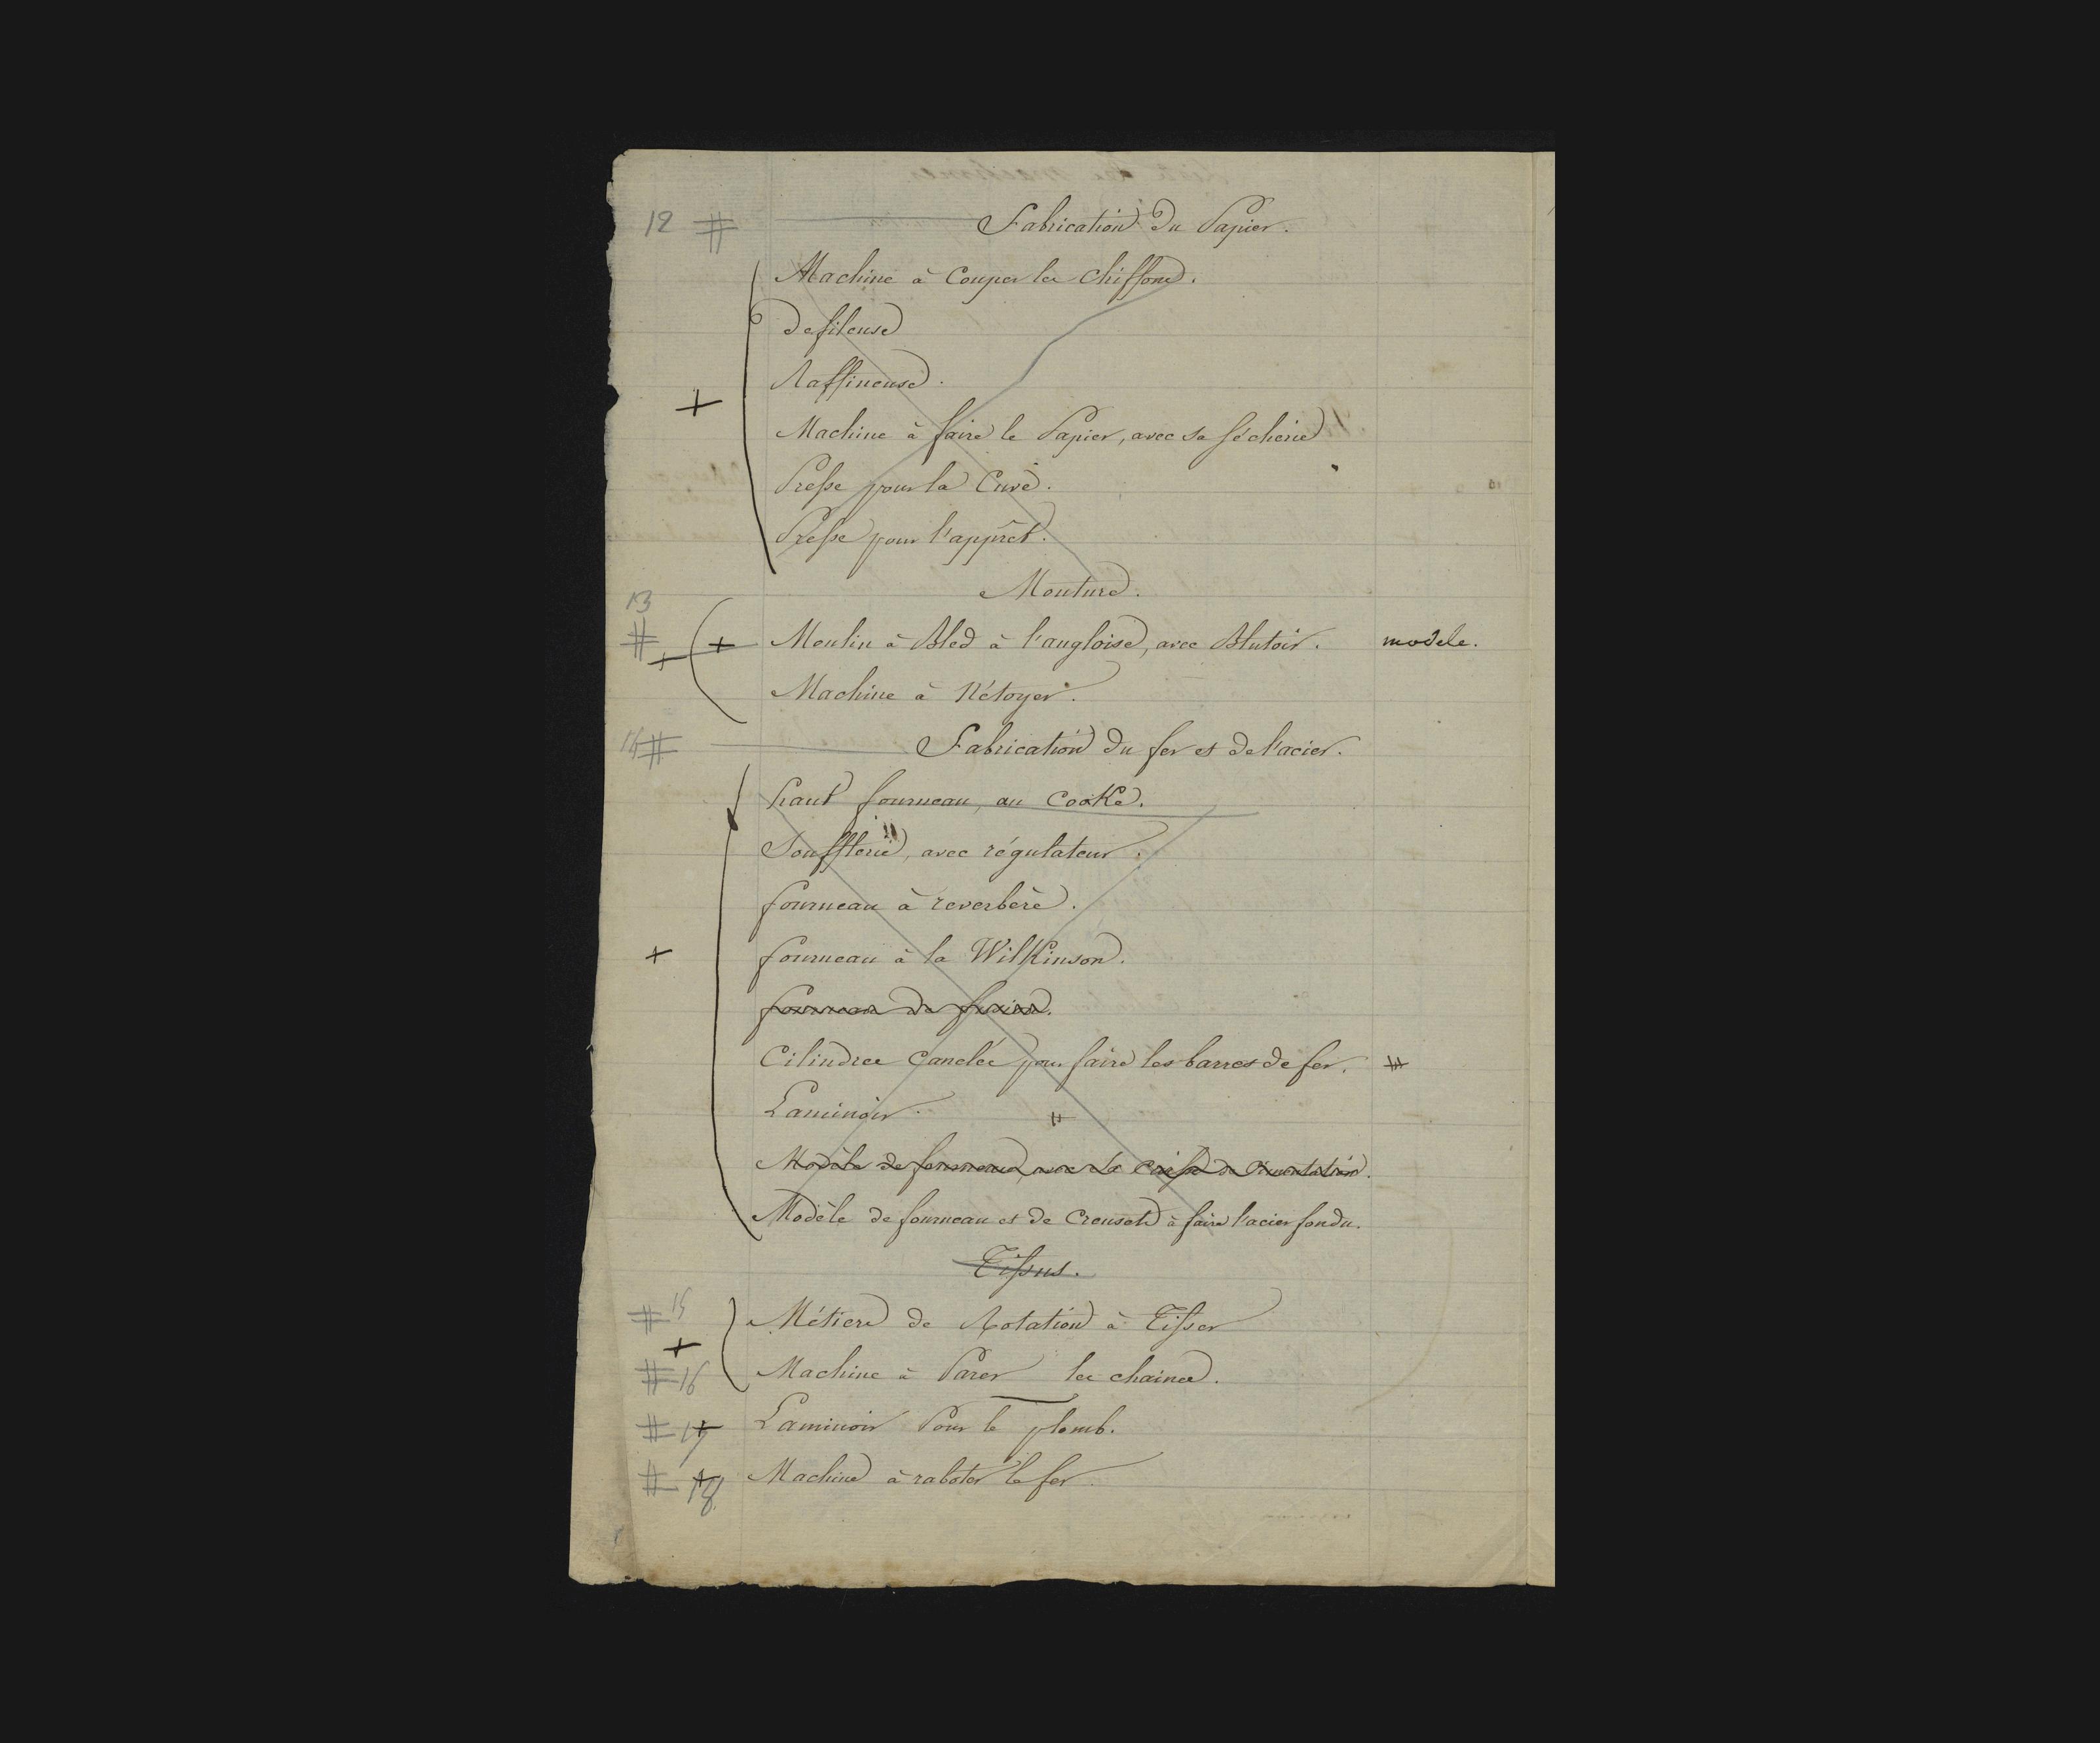 12 # Fabrication du Papier.
Machine à Couper les Chiffons.
defileuse
Raffineuse.
+ Machine à faire le Papier, avec sa sécherie
Presse pour la Cuve.
Presse pour l'apprêt.
Mouture.
13
# + + Moulin à Bled à l'angloise, avec Blutoir. modele.
Machine à Nétoyer.
14 # Fabrication du fer et de l'acier.
haut fourneau, au Cooke.
Soufflerie, avec régulateur.
fourneau à reverbère.
+ fourneau à la Wilkinson.
fourneau de fusion.
Cilindres Canelés pour faire les barres de fer. #
Laminoir. #
Modèle de fourneau, avec la Caisse de Cimentation.
Modèle de fourneau et de Creusets à faire l'acier fondu.
Tissus.
# 15 Métiers de Rotation à Tisser
+
# 16 Machine à Parer les chaines.
# 17 + Laminoir Pour le plomb.
# 18 + Machine à raboter le fer.